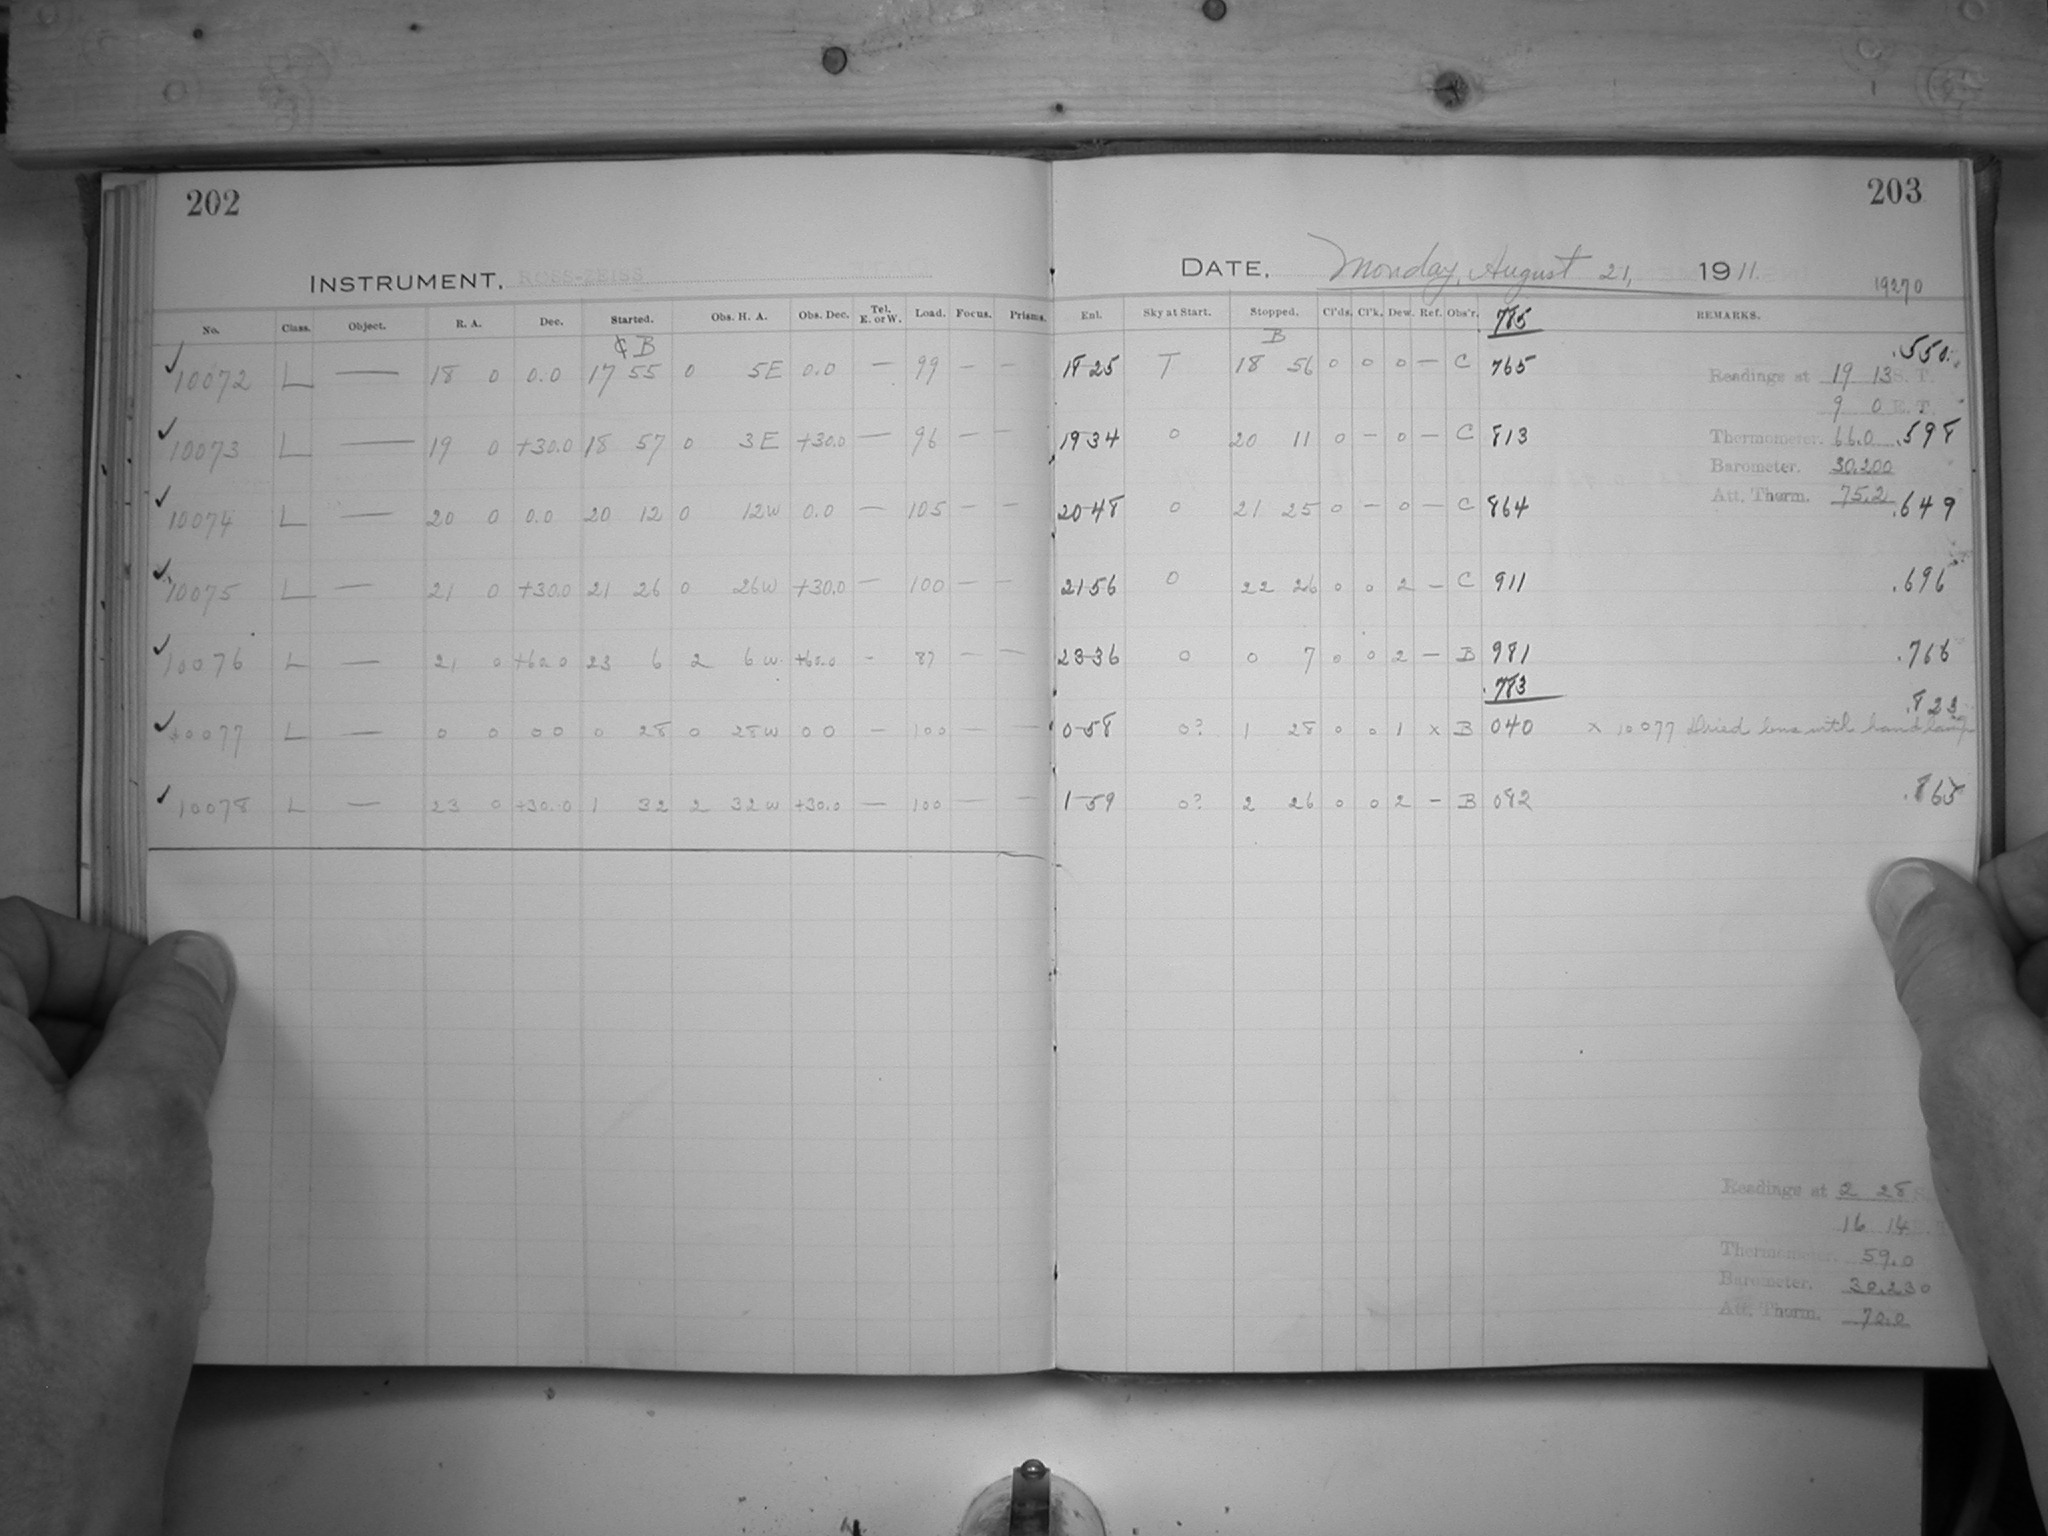 202
203
INSTRUMENT, ROSS-ZEISS
DATE, Monday, August 21, 1911.
19270
No. Class. Object. R. A. Dec. Started. Obs. H. A. Obs. Dec. Tel. E. or W. Load. Focus. Prisms. Enl. Sky at Start. Stopped. Cl'ds. Cl'k. Dew. Ref. Obs'r. 785 REMARKS.
B B
✓ 10072 L — 18 0 0.0 17 55 0 5E 0.0 — 99 — — 18-25 T 18 56 0 0 0 — C 765 .550
Readings at 19 13 S. T.
9 0 E. T.
✓ 10073 L — 19 0 +30.0 18 57 0 3E +30.0 — 96 — — 19-34 0 20 11 0 — 0 — C 813 Thermometer. 66.0 .598
Barometer. 30.200
Att. Therm. 75.2
✓ 10074 L — 20 0 0.0 20 12 0 12W 0.0 — 105 — — 20-48 0 21 25 0 — 0 — C 864 .649
✓ 10075 L — 21 0 +30.0 21 26 0 26W +30.0 — 100 — — 21-56 0 22 26 0 0 2 — C 911 .696
✓ 10076 L — 21 0 +60.0 23 6 2 6W +60.0 - 87 — — 23-36 0 0 7 0 0 2 — B 981 .766
.783
.823
✓ 10077 L — 0 0 0 0 0 28 0 28W 0 0 — 100 — — 0-58 0? 1 28 0 0 1 x B 040 x 10077 Dried lens with hand lamp
✓ 10078 L — 23 0 +30.0 1 32 2 32W +30.0 — 100 — — 1-59 0? 2 26 0 0 2 — B 082 .865
Readings at 2 28 S.
16 14
Thermometer. 59.0
Barometer. 30.230
Att. Therm. 70.0